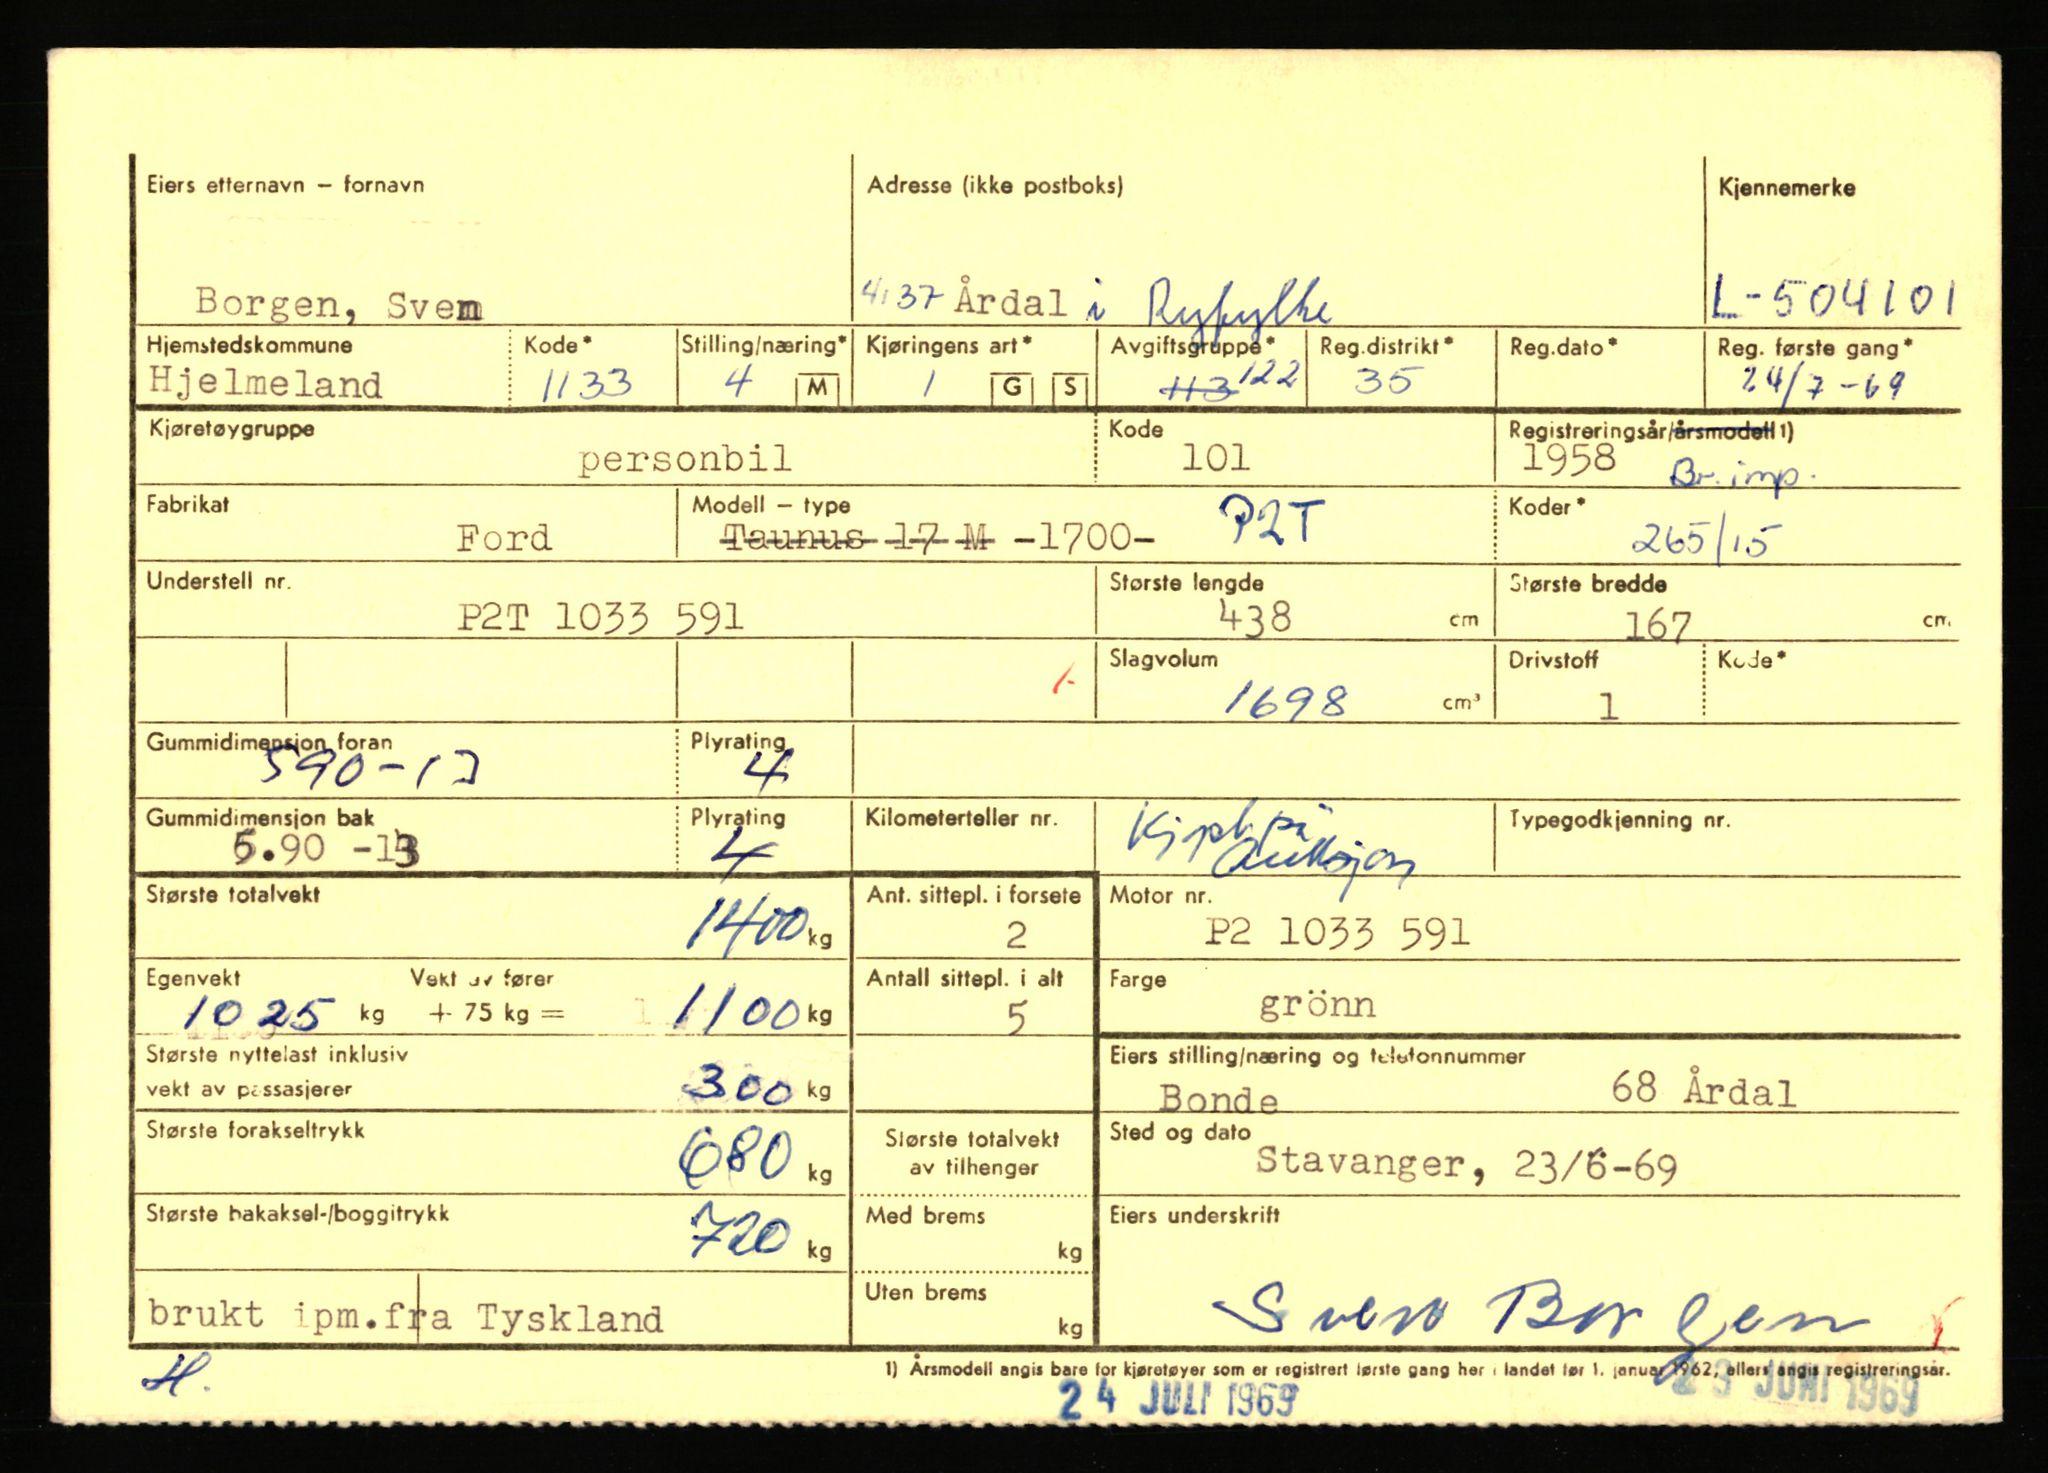 Eiers etternavn – fornavn
Adresse (ikke postboks)
Kjennemerke
Borgen, Sven
4137 Årdal i Ryfylke
L-504101
Hjemstedskommune Kode* Stilling/næring* Kjøringens art* Avgiftsgruppe* Reg.distrikt* Reg.dato* Reg. første gang*
Hjelmeland 1133 4 M 1 G S 113 122 35 24/7-69
Kjøretøygruppe Kode Registreringsår/årsmodell 1)
personbil 101 1958 Br.imp.
Fabrikat Modell – type Koder*
Ford Taunus 17 M -1700- P2T 265/15
Understell nr. Største lengde Største bredde
P2T 1033 591 438 cm 167 cm
Slagvolum Drivstoff Kode*
1698 cm³ 1
Gummidimensjon foran Plyrating
590-13 4
Gummidimensjon bak Plyrating Kilometerteller nr. Kjøpt på Typegodkjenning nr.
5.90 -13 4 Auksjon
Største totalvekt Ant. sittepl. i forsete Motor nr.
1400 kg 2 P2 1033 591
Egenvekt Vekt av fører Antall sittepl. i alt Farge
1025 kg + 75 kg = 1100 kg 5 grönn
Største nyttelast inklusiv Eiers stilling/næring og telefonnummer
vekt av passasjerer 300 kg Bonde 68 Årdal
Største forakseltrykk Største totalvekt Sted og dato
680 kg av tilhenger Stavanger, 23/6-69
Største bakaksel-/boggitrykk Med brems Eiers underskrift
720 kg kg
Uten brems
brukt ipm.fra Tyskland kg Sven Borgen
H.
1) Årsmodell angis bare for kjøretøyer som er registrert første gang her i landet før 1. januar 1962, ellers angis registreringsår.
24 JULI 1969
23 JUNI 1969